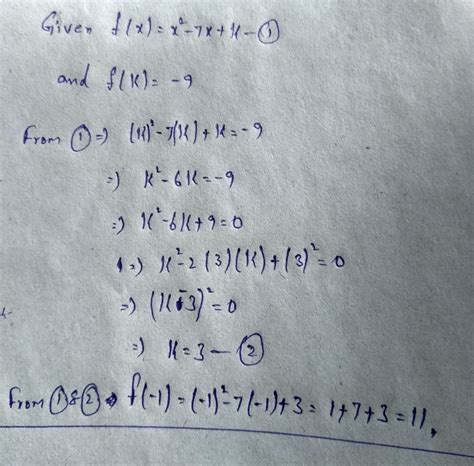 Given f(x) = x²-7x+k - ①
and f(k) = -9
From ① => (k)²-7(k)+k = -9
=) k²-6k = -9
=) k²-6k+9=0
=) k²-2(3)(k)+(3)²=0
=) (k-3)²=0
=) k=3 - ②
From ①&② => f(-1) = (-1)²-7(-1)+3 = 1+7+3 = 11,